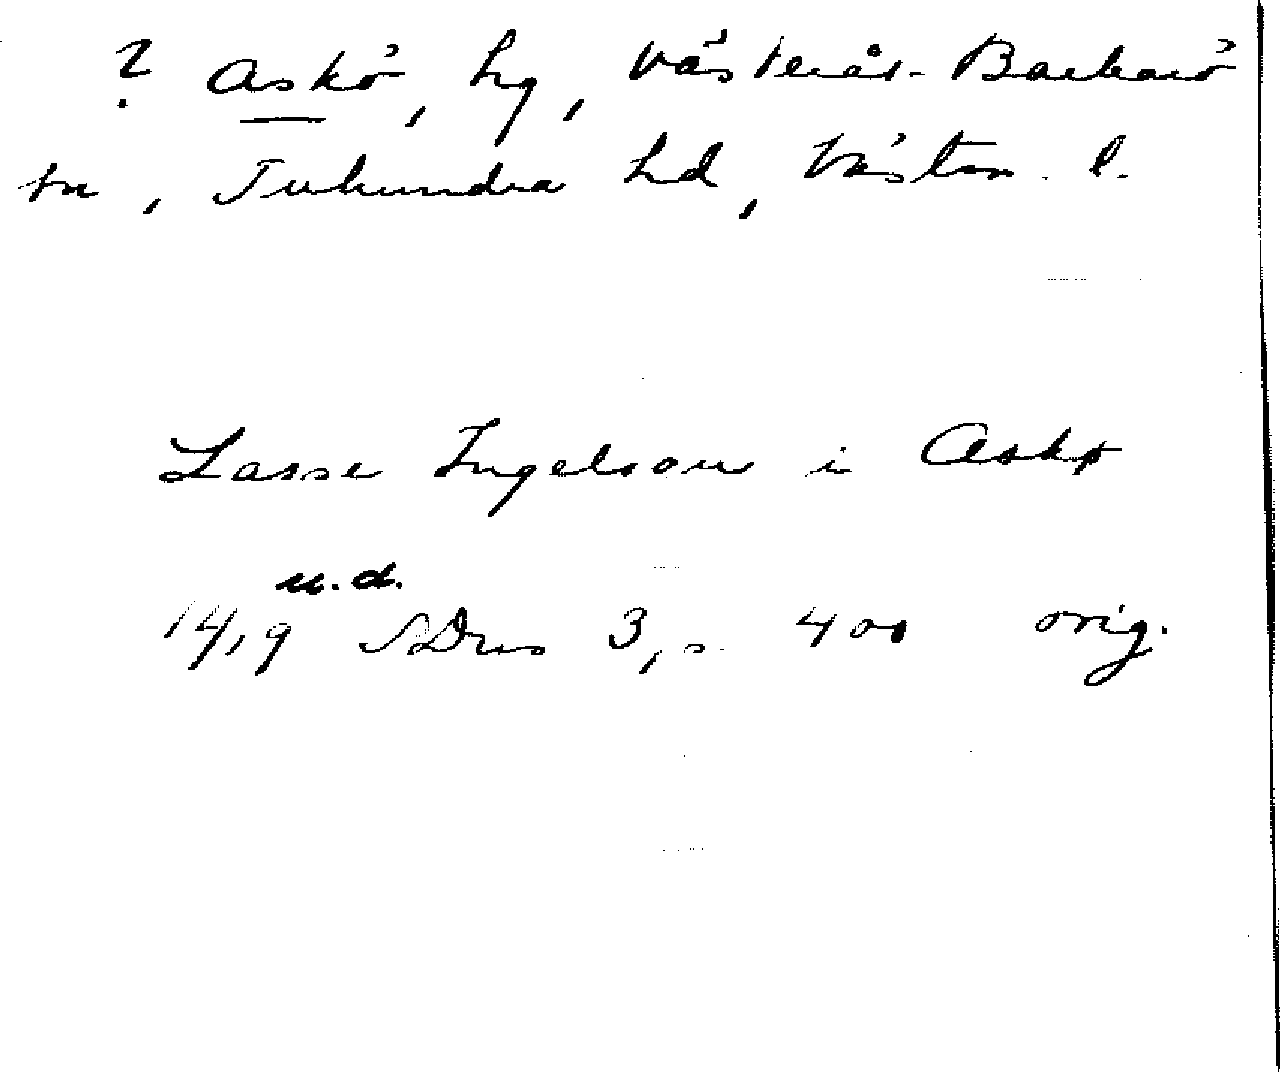 ? Askö, hg, Västerås-Barkarö
sn, Tuhundra hd, Västm. l.
Lasse Ingelson i Askø
u.d.
1419 SDns 3, s. 400 orig.